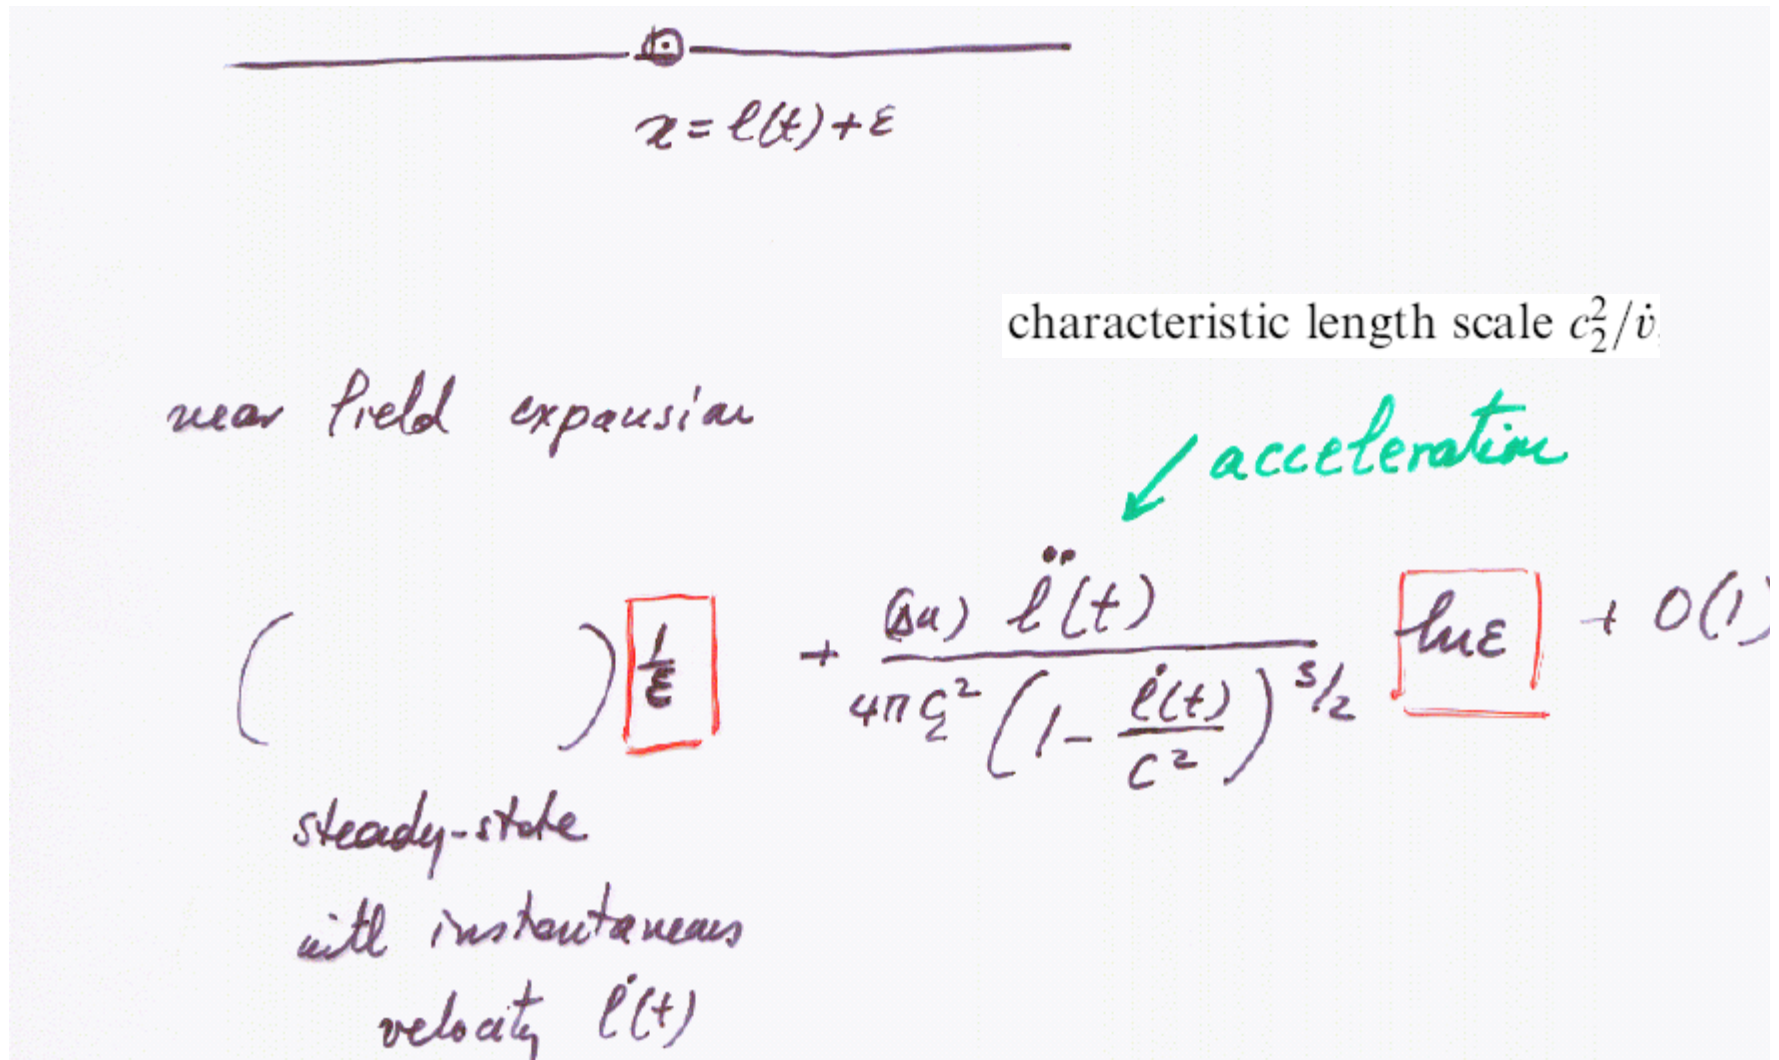 x = l(t) + ε
characteristic length scale c₂²/v̇
near field expansion
acceleration
( ) 1/ε + (Δu) l̈(t) / 4πc₂² (1 - l̇(t)/c²)^3/2 ln ε + O(1)
steady-state
with instantaneous
velocity l̇(t)